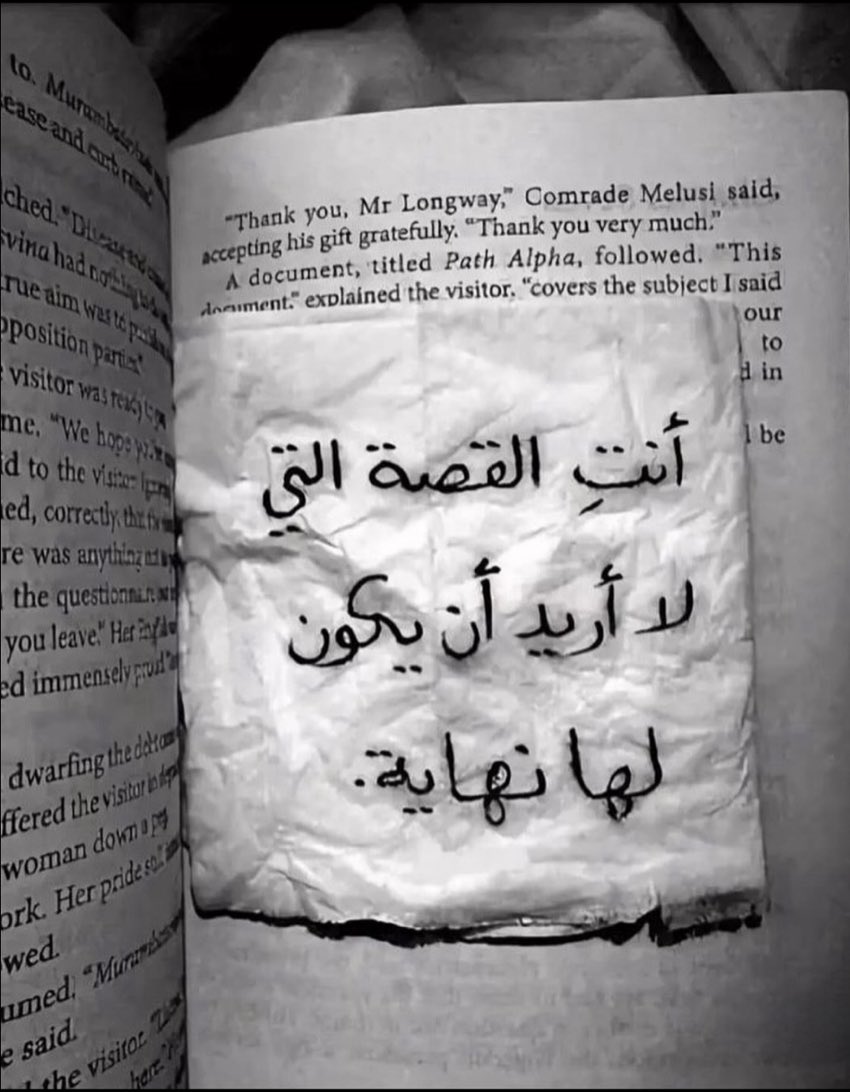 to.
ease and curb
ched. "Disease and
svina had nothing
rue aim was to
pposition parties"
visitor was ready to
me. "We hope
id to the visitor
ned, correctly, that
re was anything
the questionnaire
you leave." Her
ed immensely proud
dwarfing the
ffered the visitor
woman down a peg
ork. Her pride
wed.
umed,
e said.
the visitor.
here."
"Thank you, Mr Longway," Comrade Melusi said,
accepting his gift gratefully. "Thank you very much."
A document, titled Path Alpha, followed. "This
document," explained the visitor, "covers the subject I said
our
to
d in
l be
أنتِ القصة التي
لا أريد أن يكون
لها نهاية.